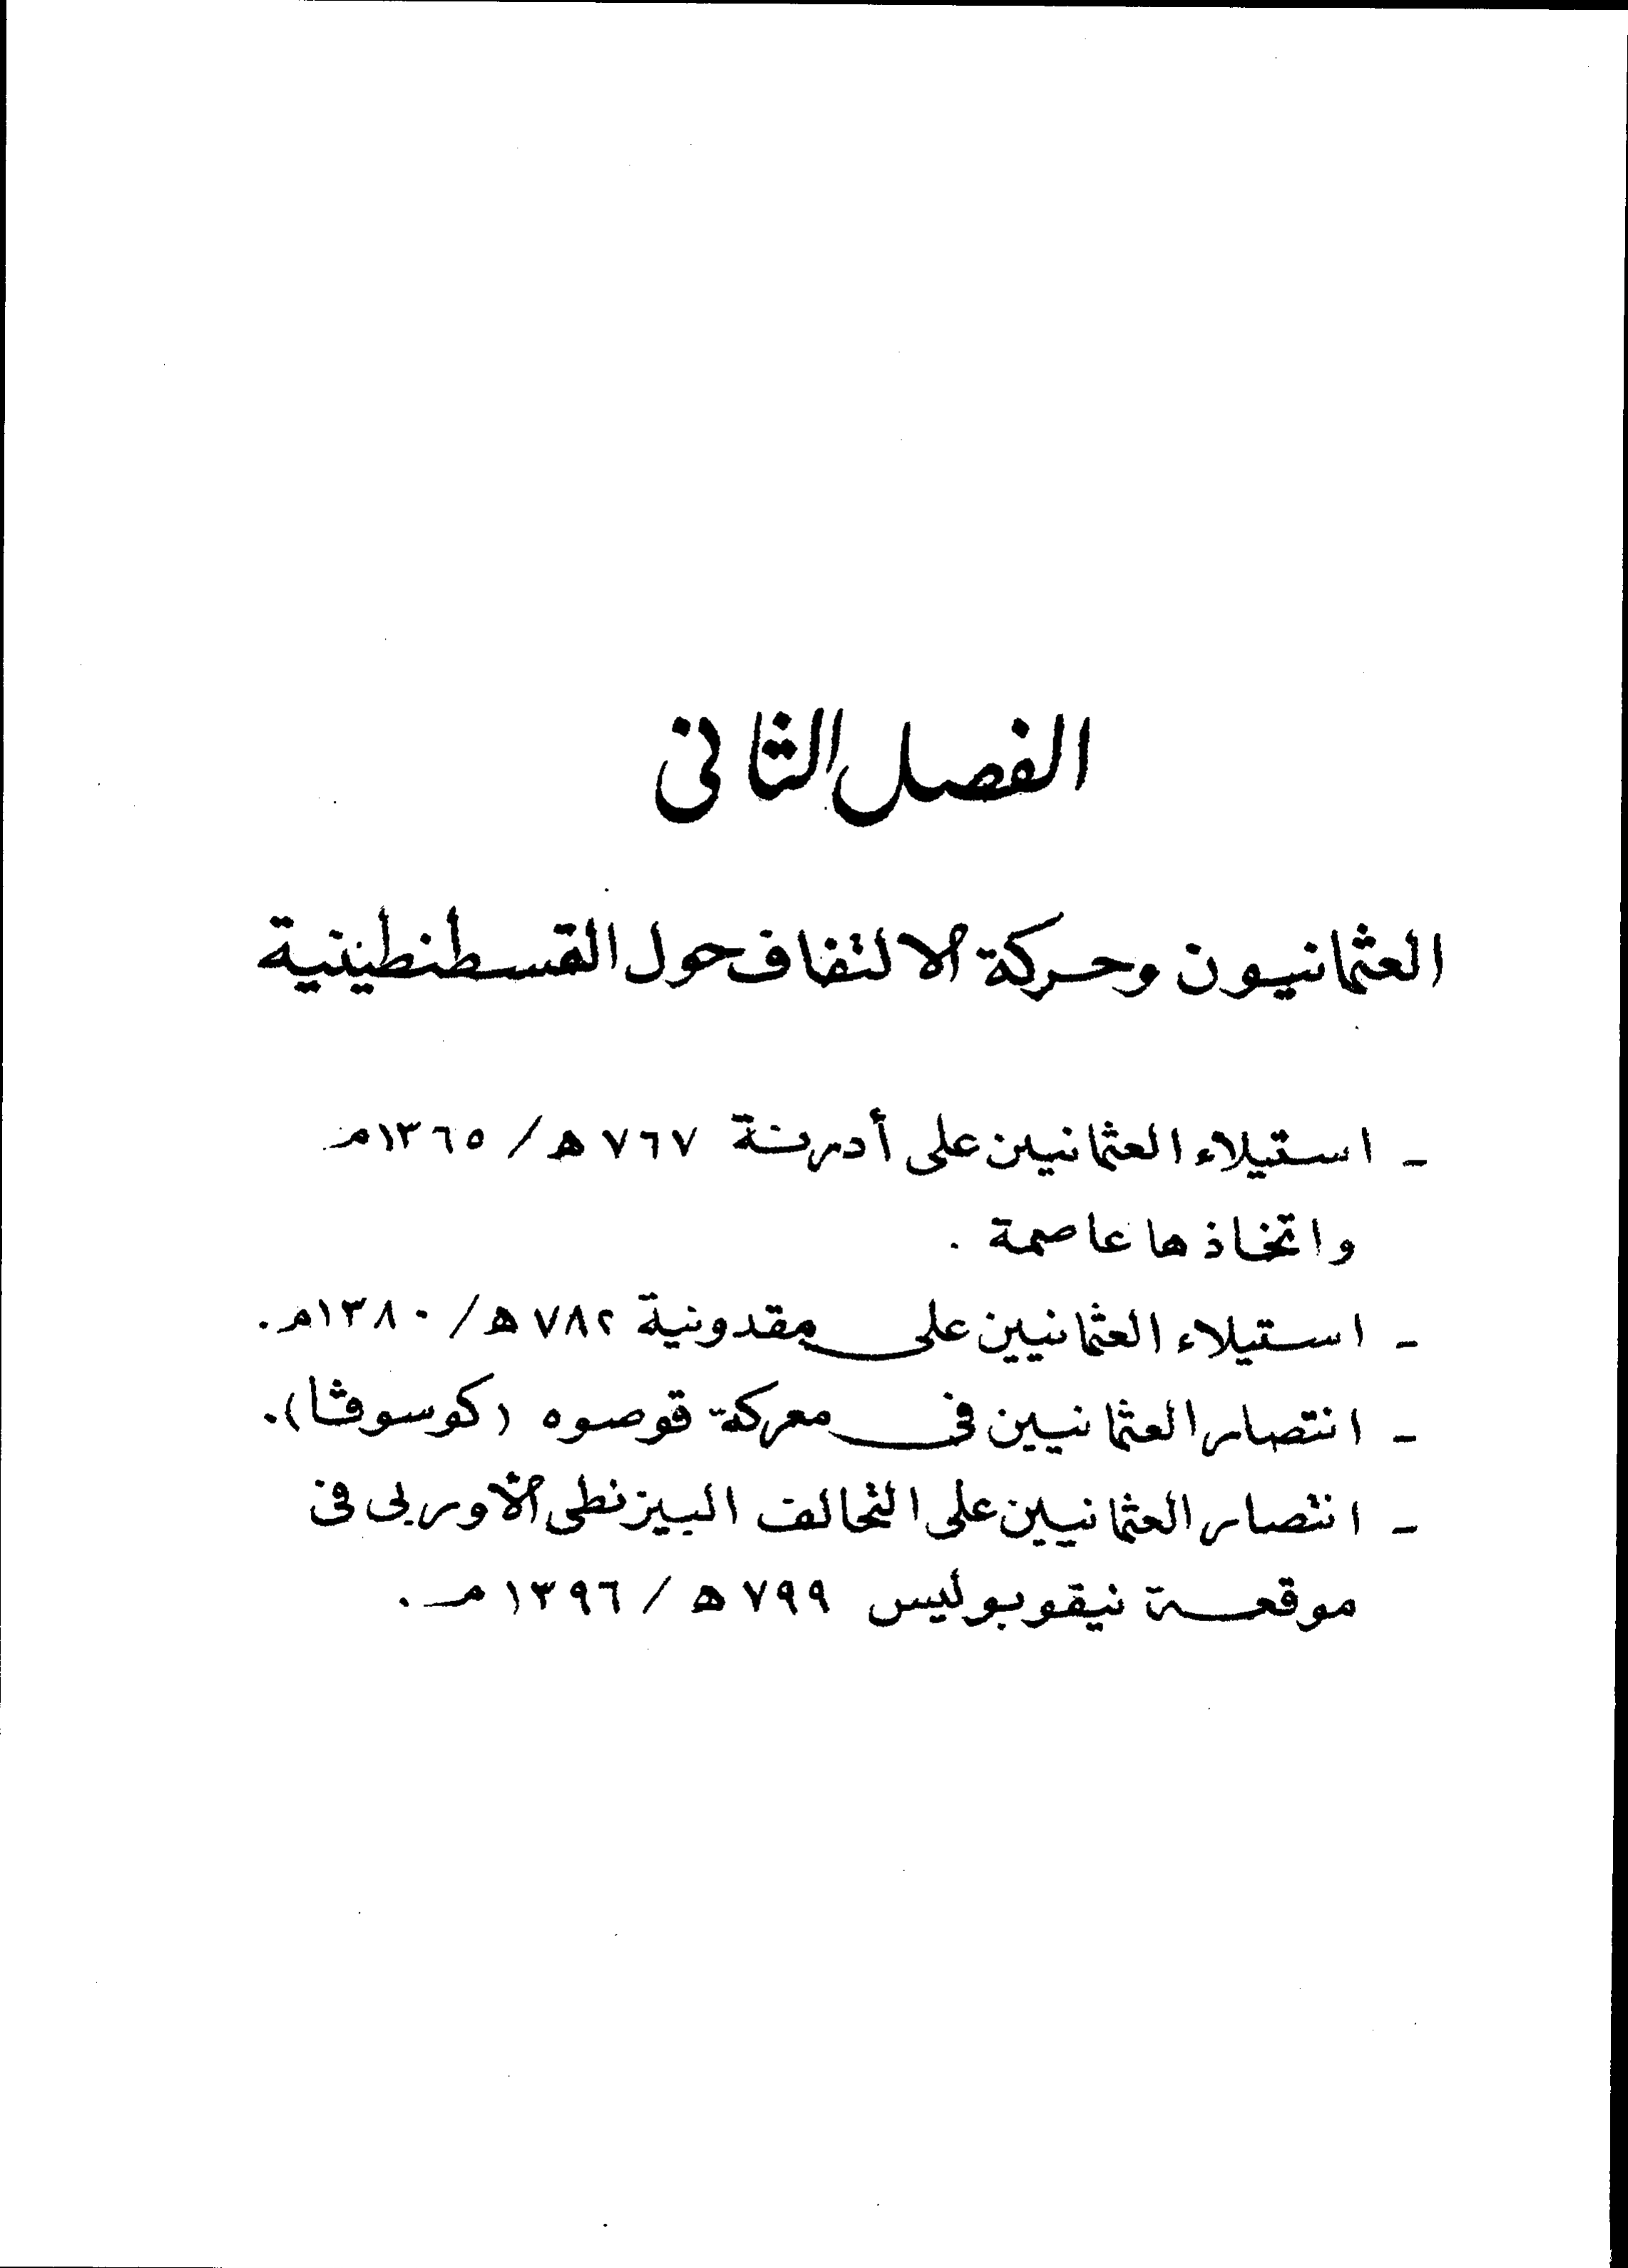 الفصل الثانى
العثمانيون وحركة الالتفاف حول القسطنطينية
- استيلاء العثمانيين على أدرنة ٧٦٧ هـ / ١٣٦٥م
واتخاذها عاصمة .
- استيلاء العثمانيين على مقدونية ٧٨٢ هـ / ١٣٨٠م .
- انتصار العثمانيين فى معركة قوصوه (كوسوڤا) .
- انتصار العثمانيين على التحالف البيزنطى الأوربى فى
موقعة نيقوبوليس ٧٩٩ هـ / ١٣٩٦م .